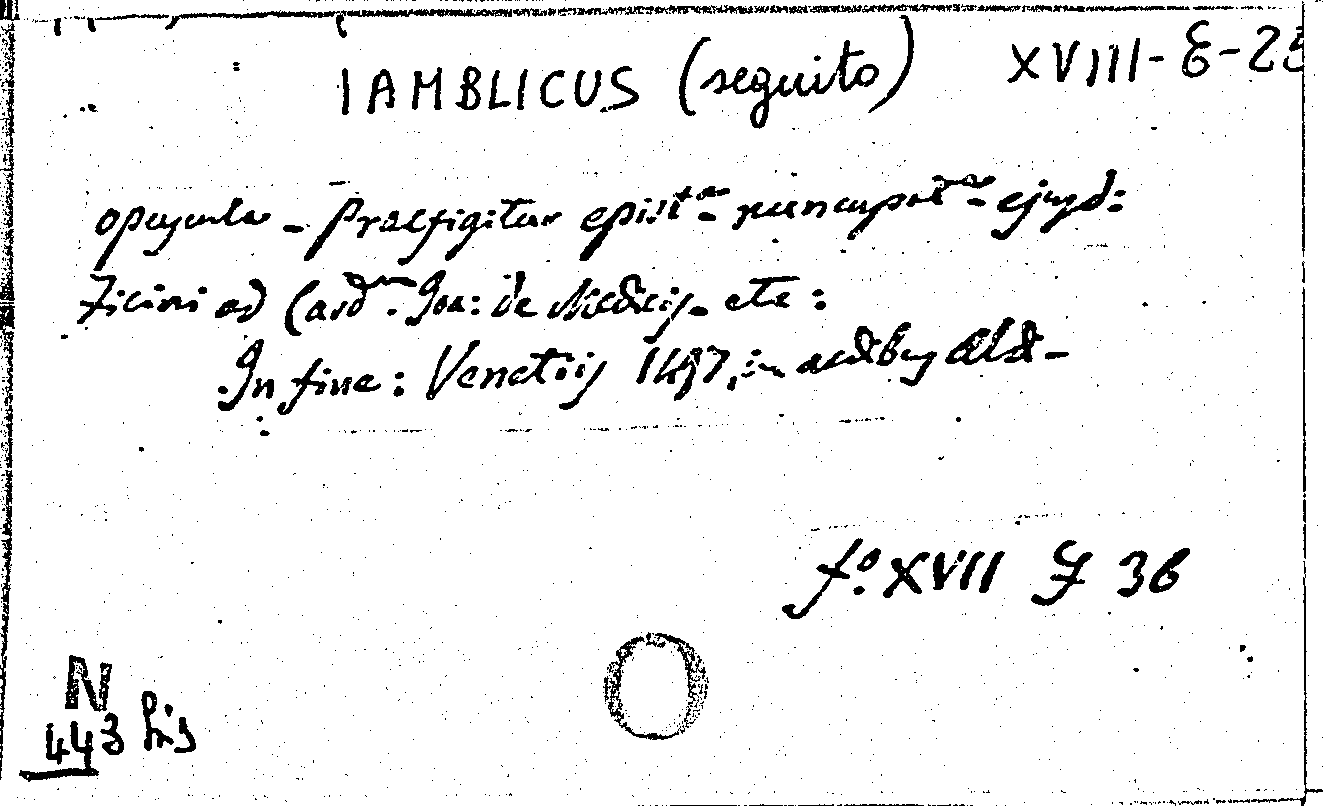 IAMBLICUS (seguito) XVIII-6-25
opuscula - Praefigitur epist.a nuncupat.a ejusd:
Ficini ad Card.m Joa: de Medicis etc:
In fine: Venetiis 1497, in aedibus Aldi -
f.o XVII G 36
N
443 bis